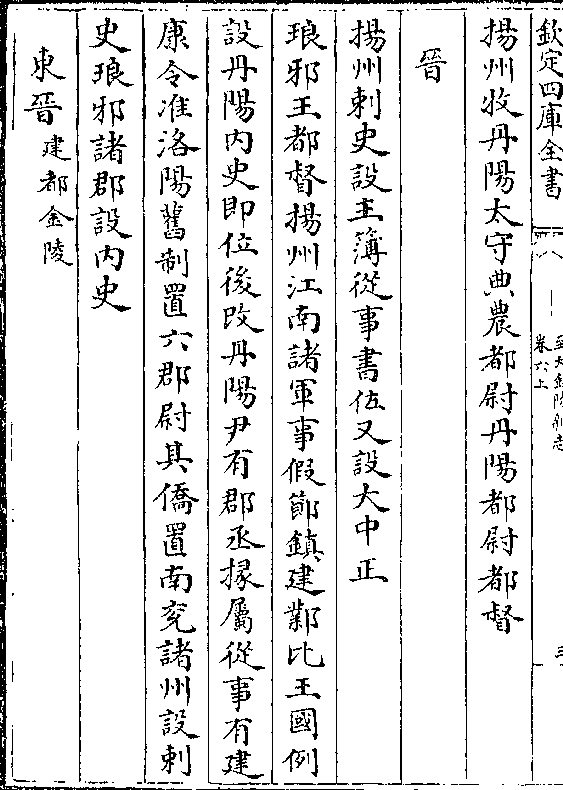 欽定四庫全書
至大金陵新志
卷六上
揚州牧丹陽太守典農都尉丹陽都尉都督
晉
揚州刺史設主簿從事書佐又設大中正
琅邪王都督揚州江南諸軍事假節鎮建鄴比王國例
設丹陽内史即位後改丹陽尹有郡丞掾屬從事有建
康令准洛陽舊制置六郡尉其僑置南兖諸州設刺
史琅邪諸郡設内史
東晉建都金陵